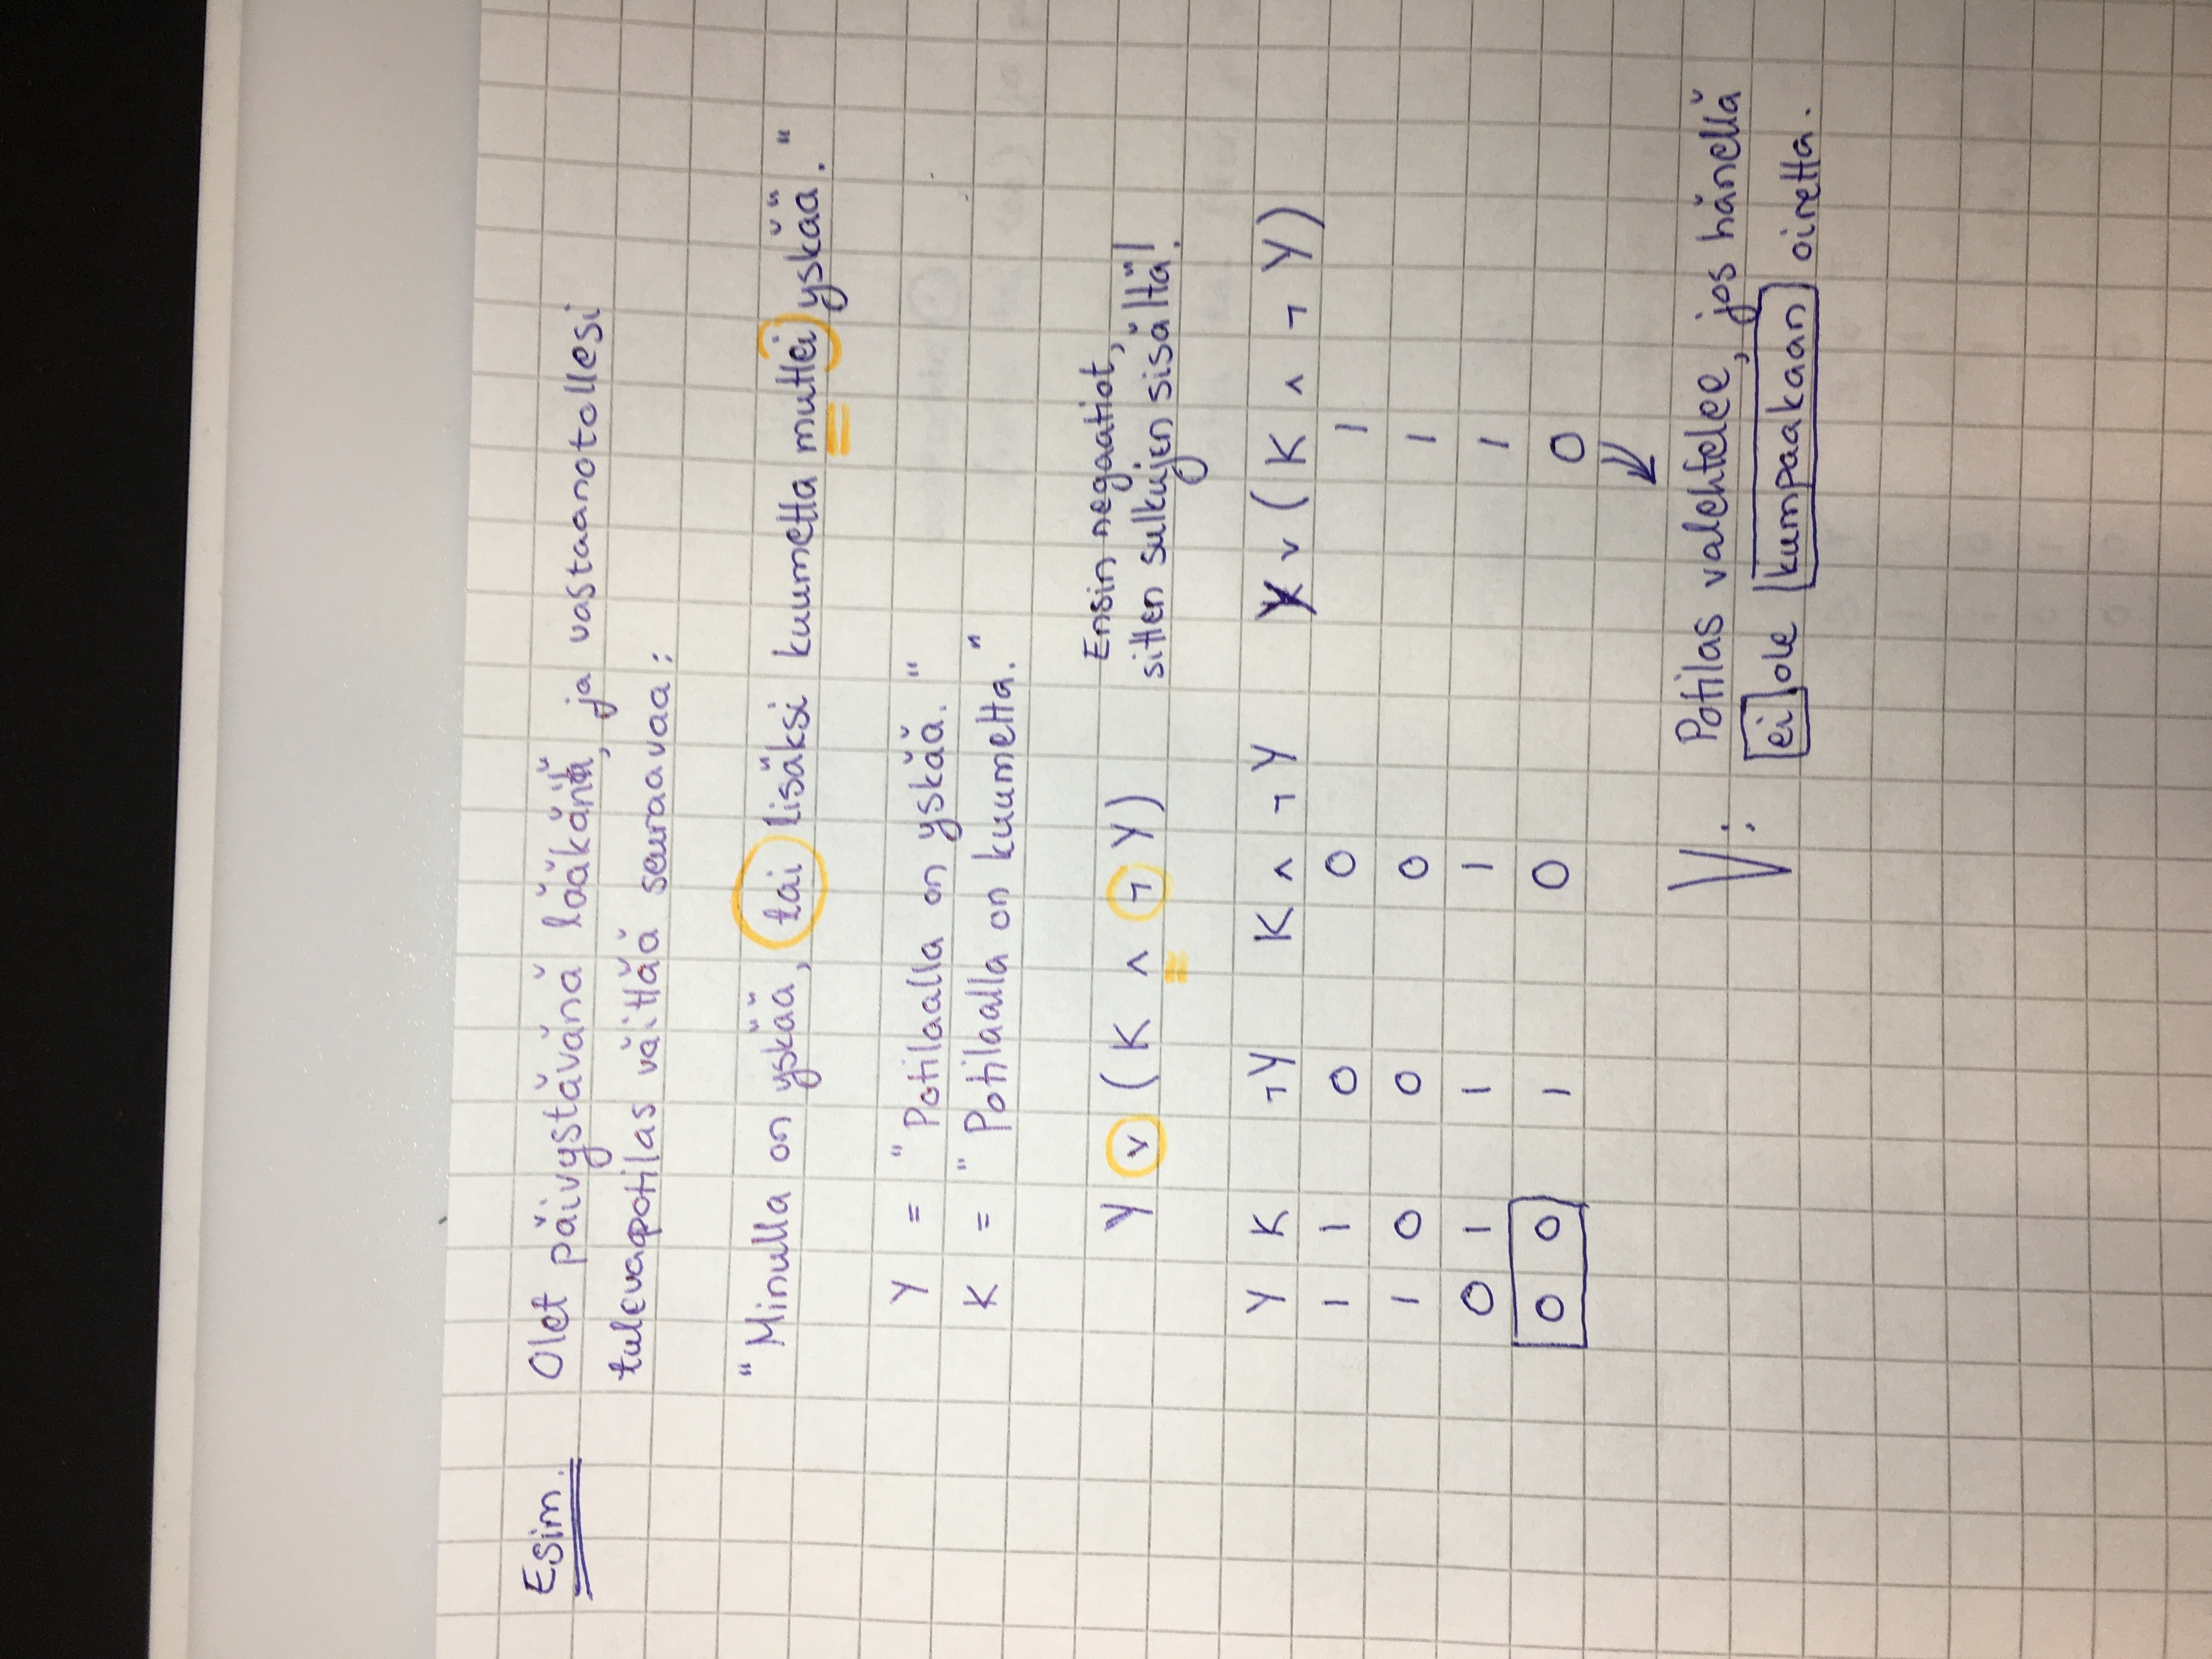 Esim. Olet päivystävänä lääkärinä, ja vastaanotollesi
tulevapotilas väittää seuraavaa:
"Minulla on yskää, tai lisäksi kuumetta muttei yskää."
Y = "Potilaalla on yskää."
K = "Potilaalla on kuumetta."
Ensin negaatiot,
Y ∨ (K ∧ ¬ Y) sitten sulkujen sisältä!
Y K ¬Y K ∧ ¬Y Y ∨ (K ∧ ¬ Y)
1 1 0 0 1
1 0 0 0 1
0 1 1 1 1
0 0 1 0 0
V: Potilas valehtelee, jos hänellä
ei ole kumpaakaan oiretta.